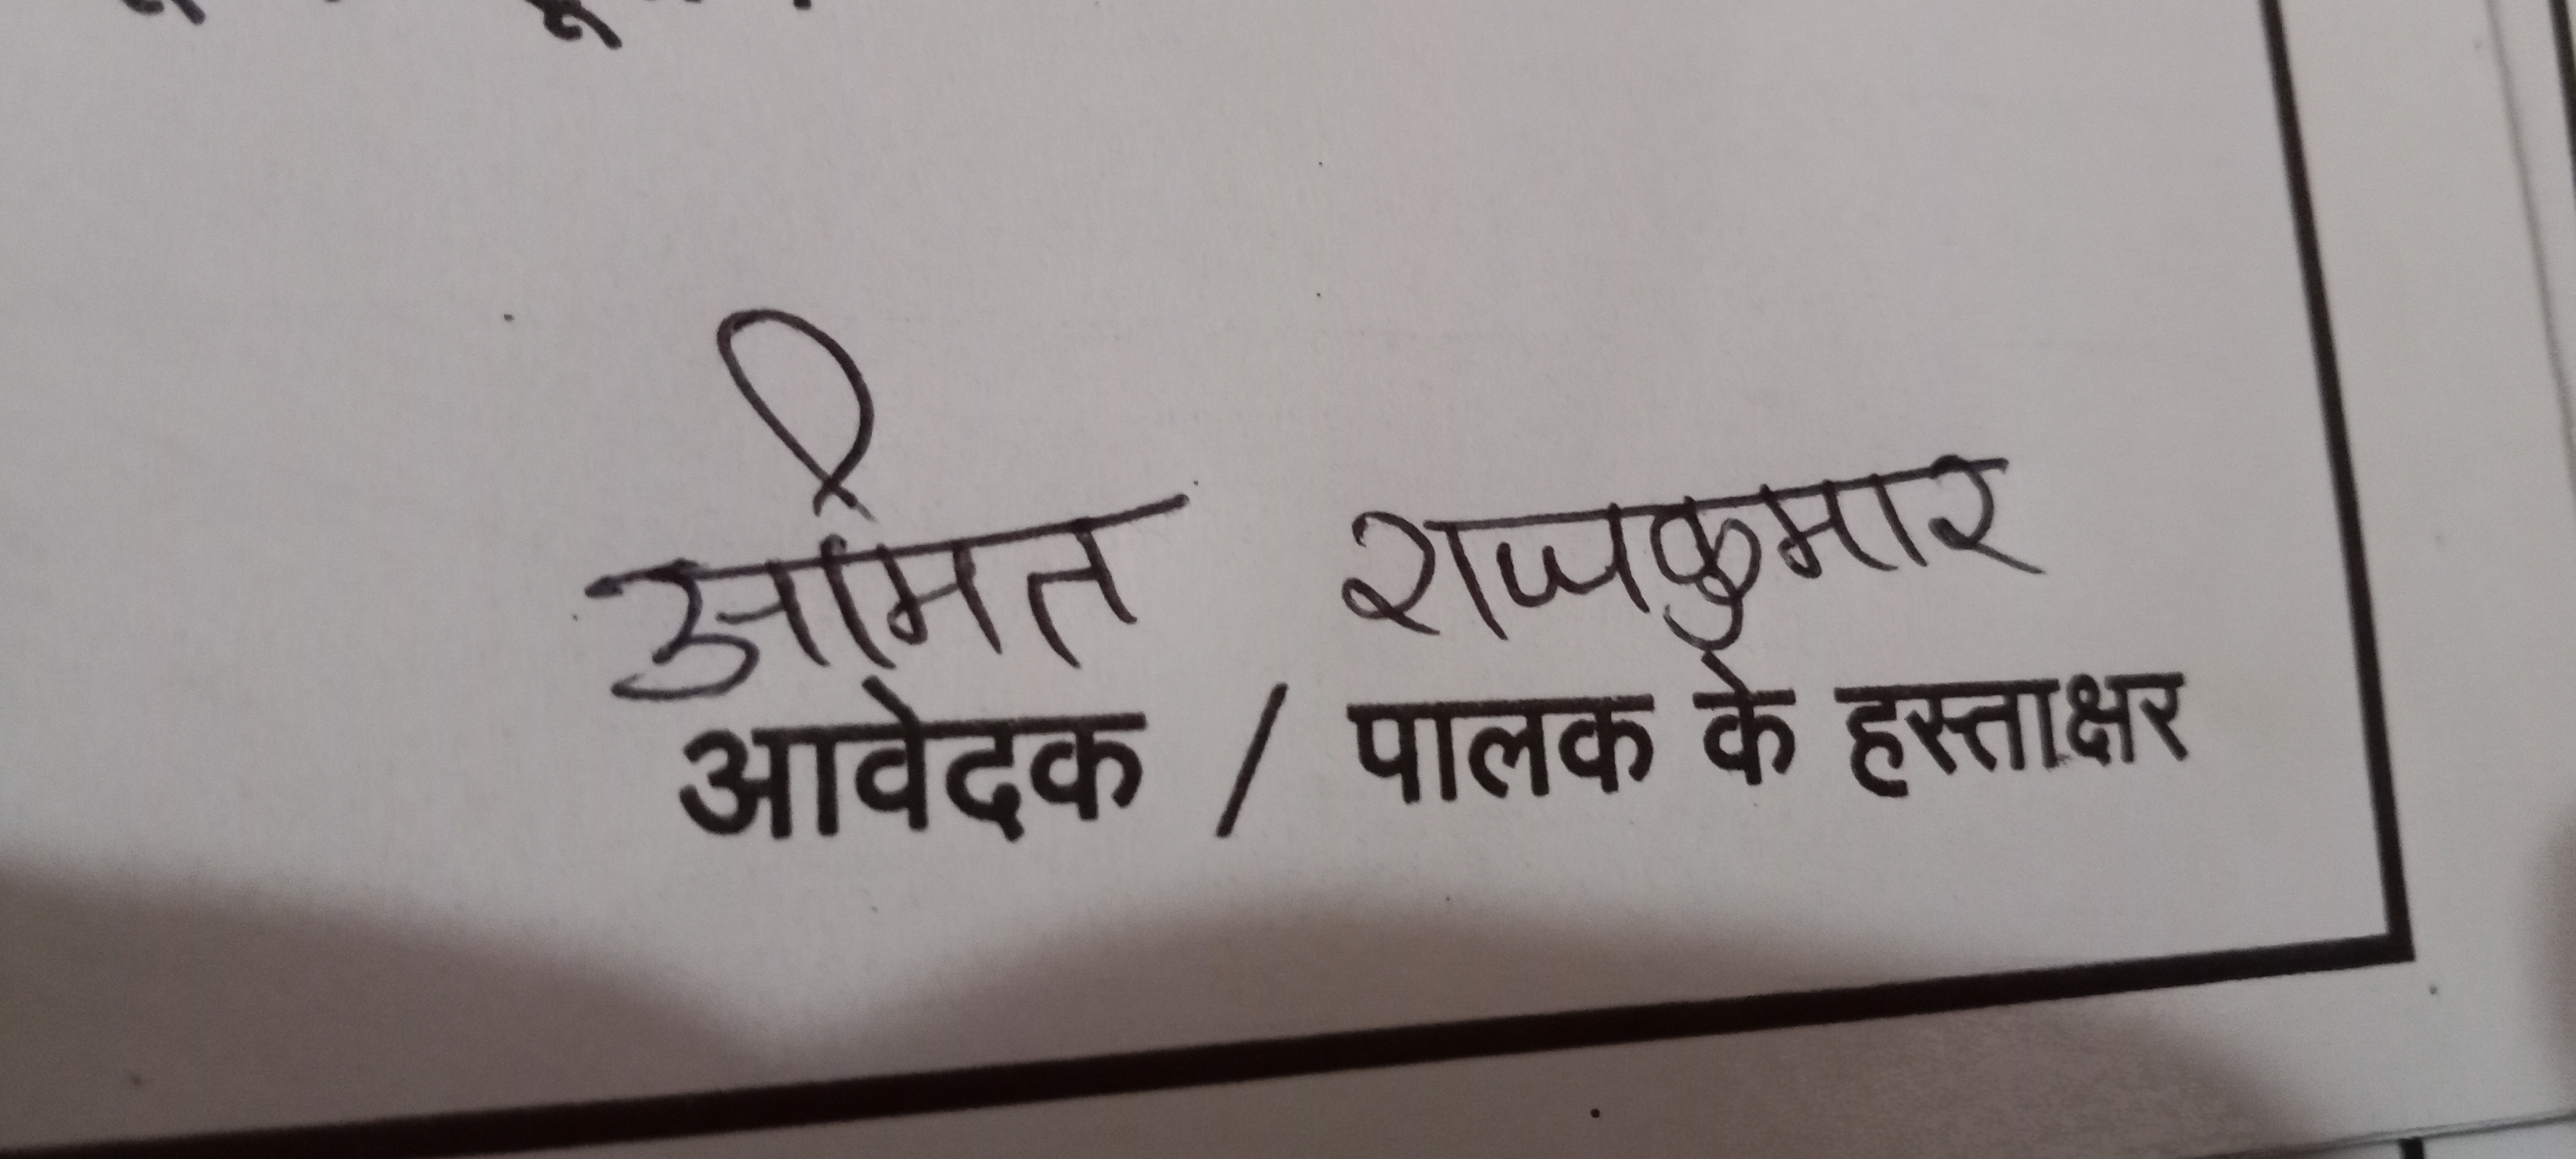 अमित राजकुमार
आवेदक / पालक के हस्ताक्षर